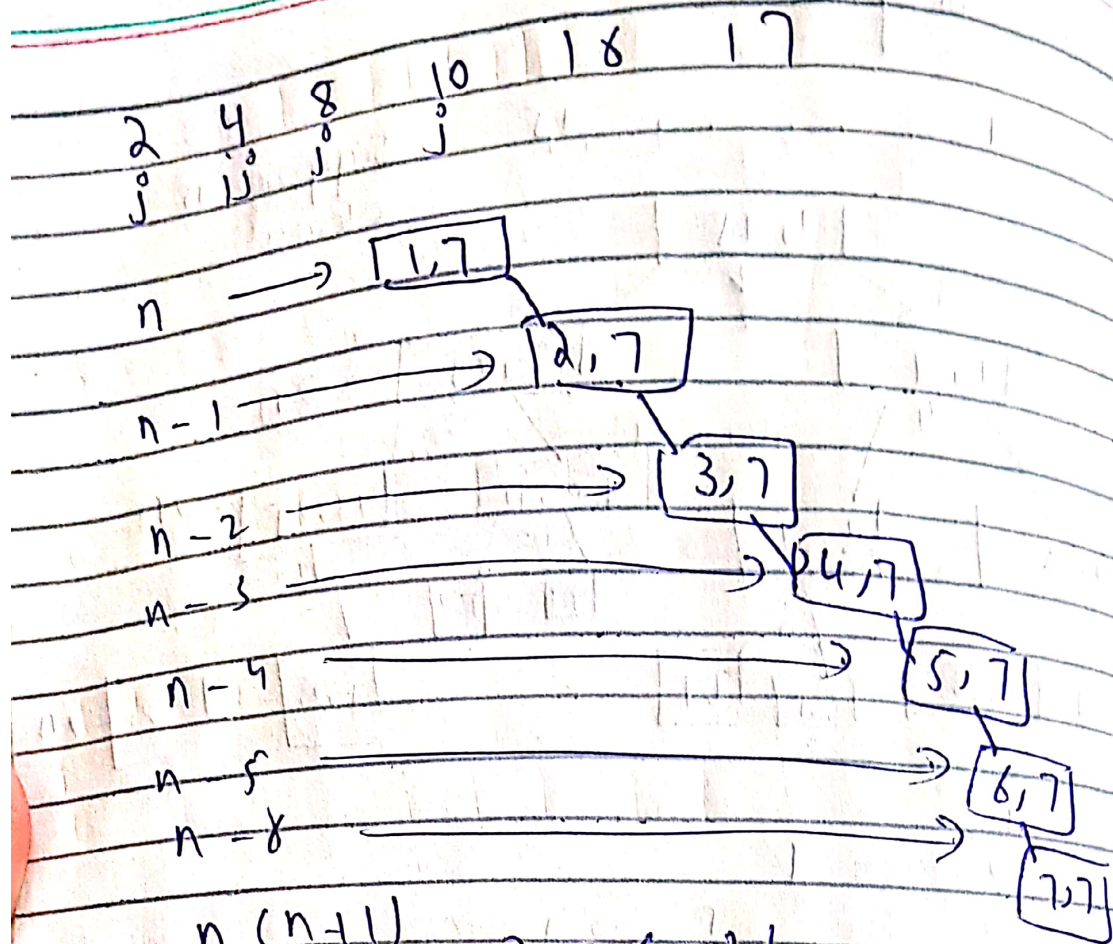 2 4 8 10 18 17
j j j j
n → 1,7
n-1 → 2,7
n-2 → 3,7
n-3 → 4,7
n-4 → 5,7
n-5 → 6,7
n-8 → 7,7
n(n+1)